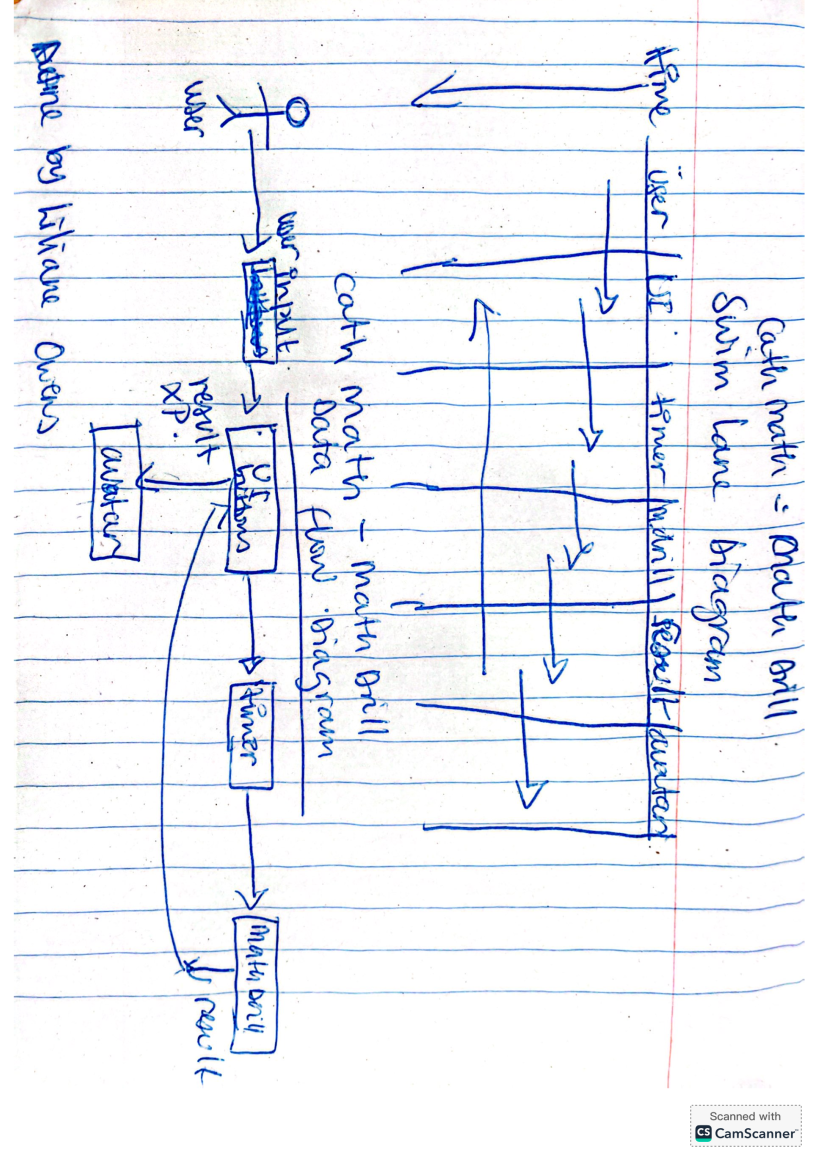 Cath math = Math Drill
Swim Lane Diagram
time
User
UI
timer
mdrill
Result
avatar
Cath math - math Drill
Data flow Diagram
user input
user
UI
buttons
timer
Math Drill
result
result
XP.
avatar
by Liliane Owens
Scanned with
CS CamScanner